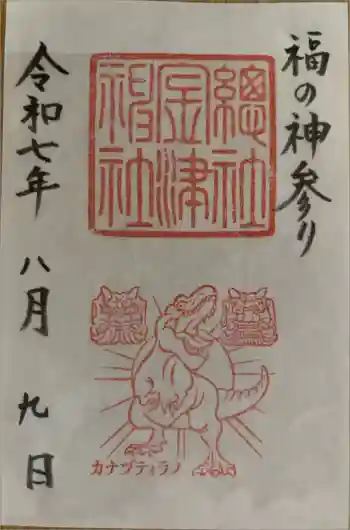 福の神参り
總社
金津
神社
令和七年 八月 九日
カナヅティラノ